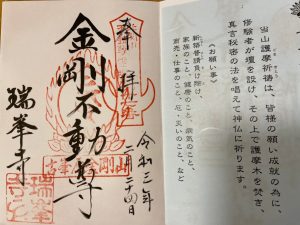 当山護摩祈禱は、皆様の願い成就の為に、
修験者が壇を設け、その上で護摩木を焚き、
真言秘密の法を唱えて神仏に祈ります。
《お願い事》
新築普請負け除け、
家族のこと、健康のこと、病気のこと、
商売・仕事のこと、厄・災いのこと、など
奉拝
令和三年
二月二十四日
金剛不動尊
瑞峯寺